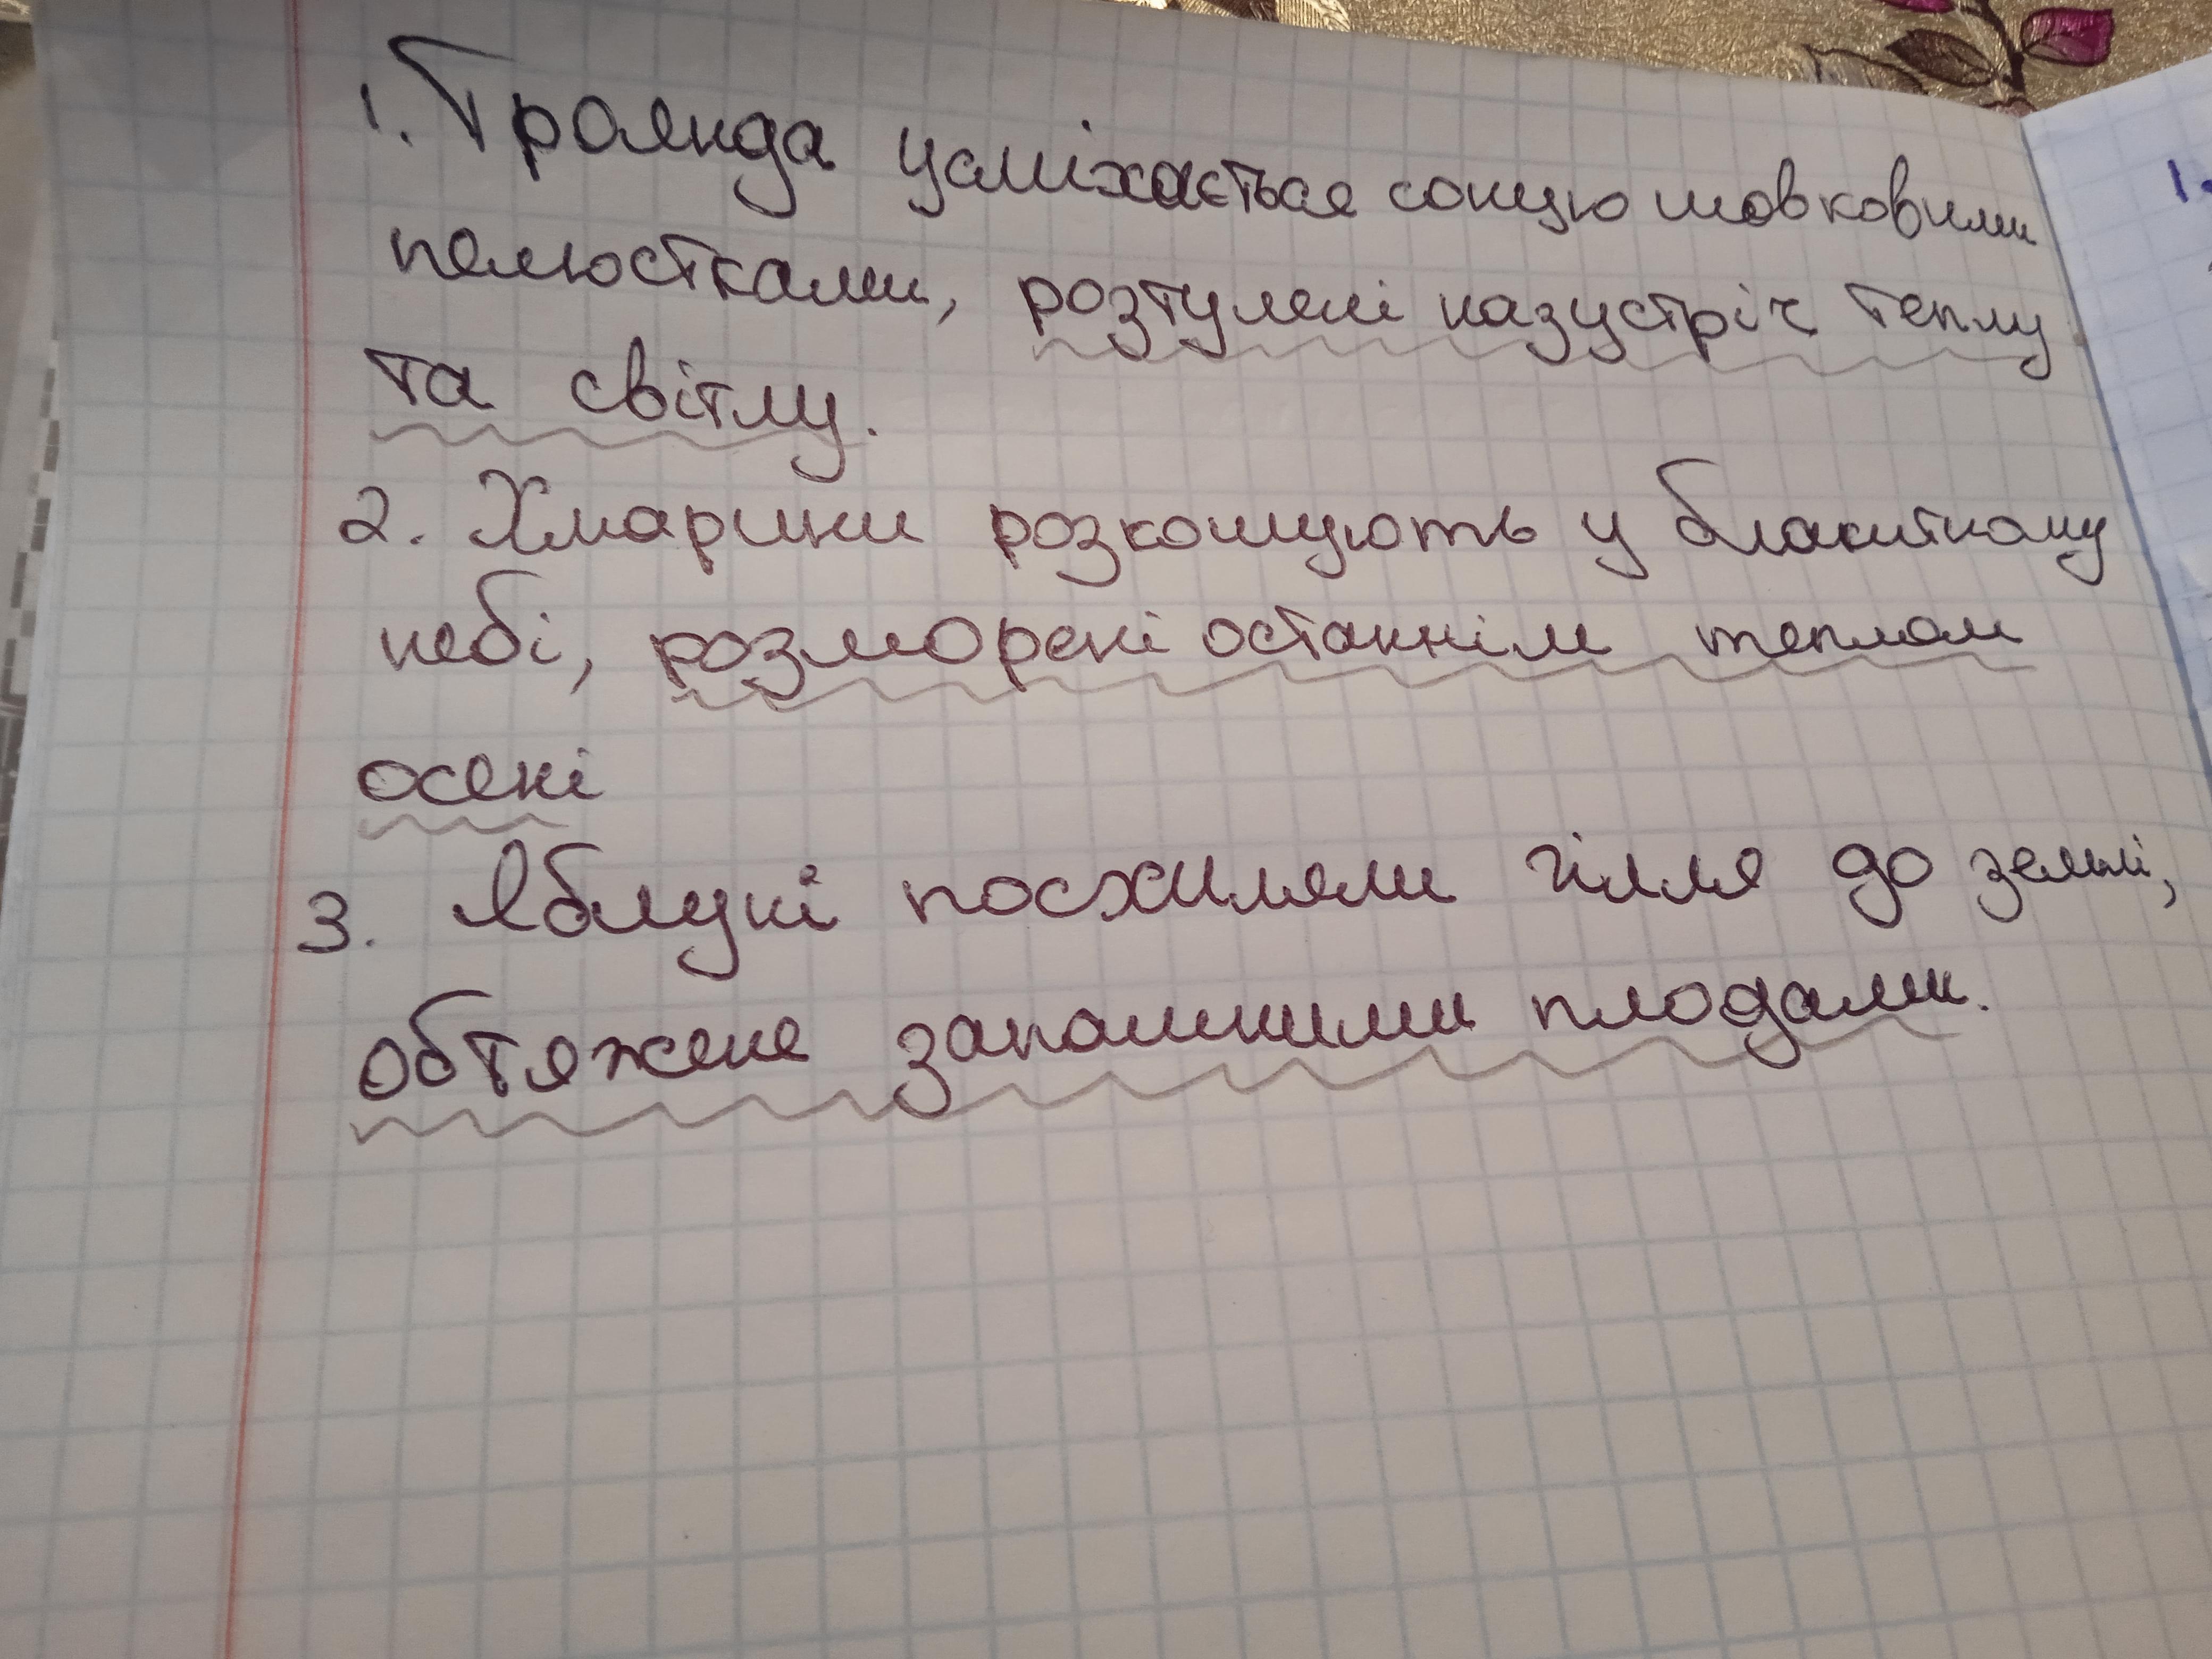 1. Троянда усміхається сонцю шовковими
пелюстками, розтулені назустріч теплу
та світлу.
2. Хмарини розкошують у блакитному
небі, розморені останнім теплом
осені
3. Яблуні посхиляли гілля до землі,
обтяжене запашними плодами.
1.